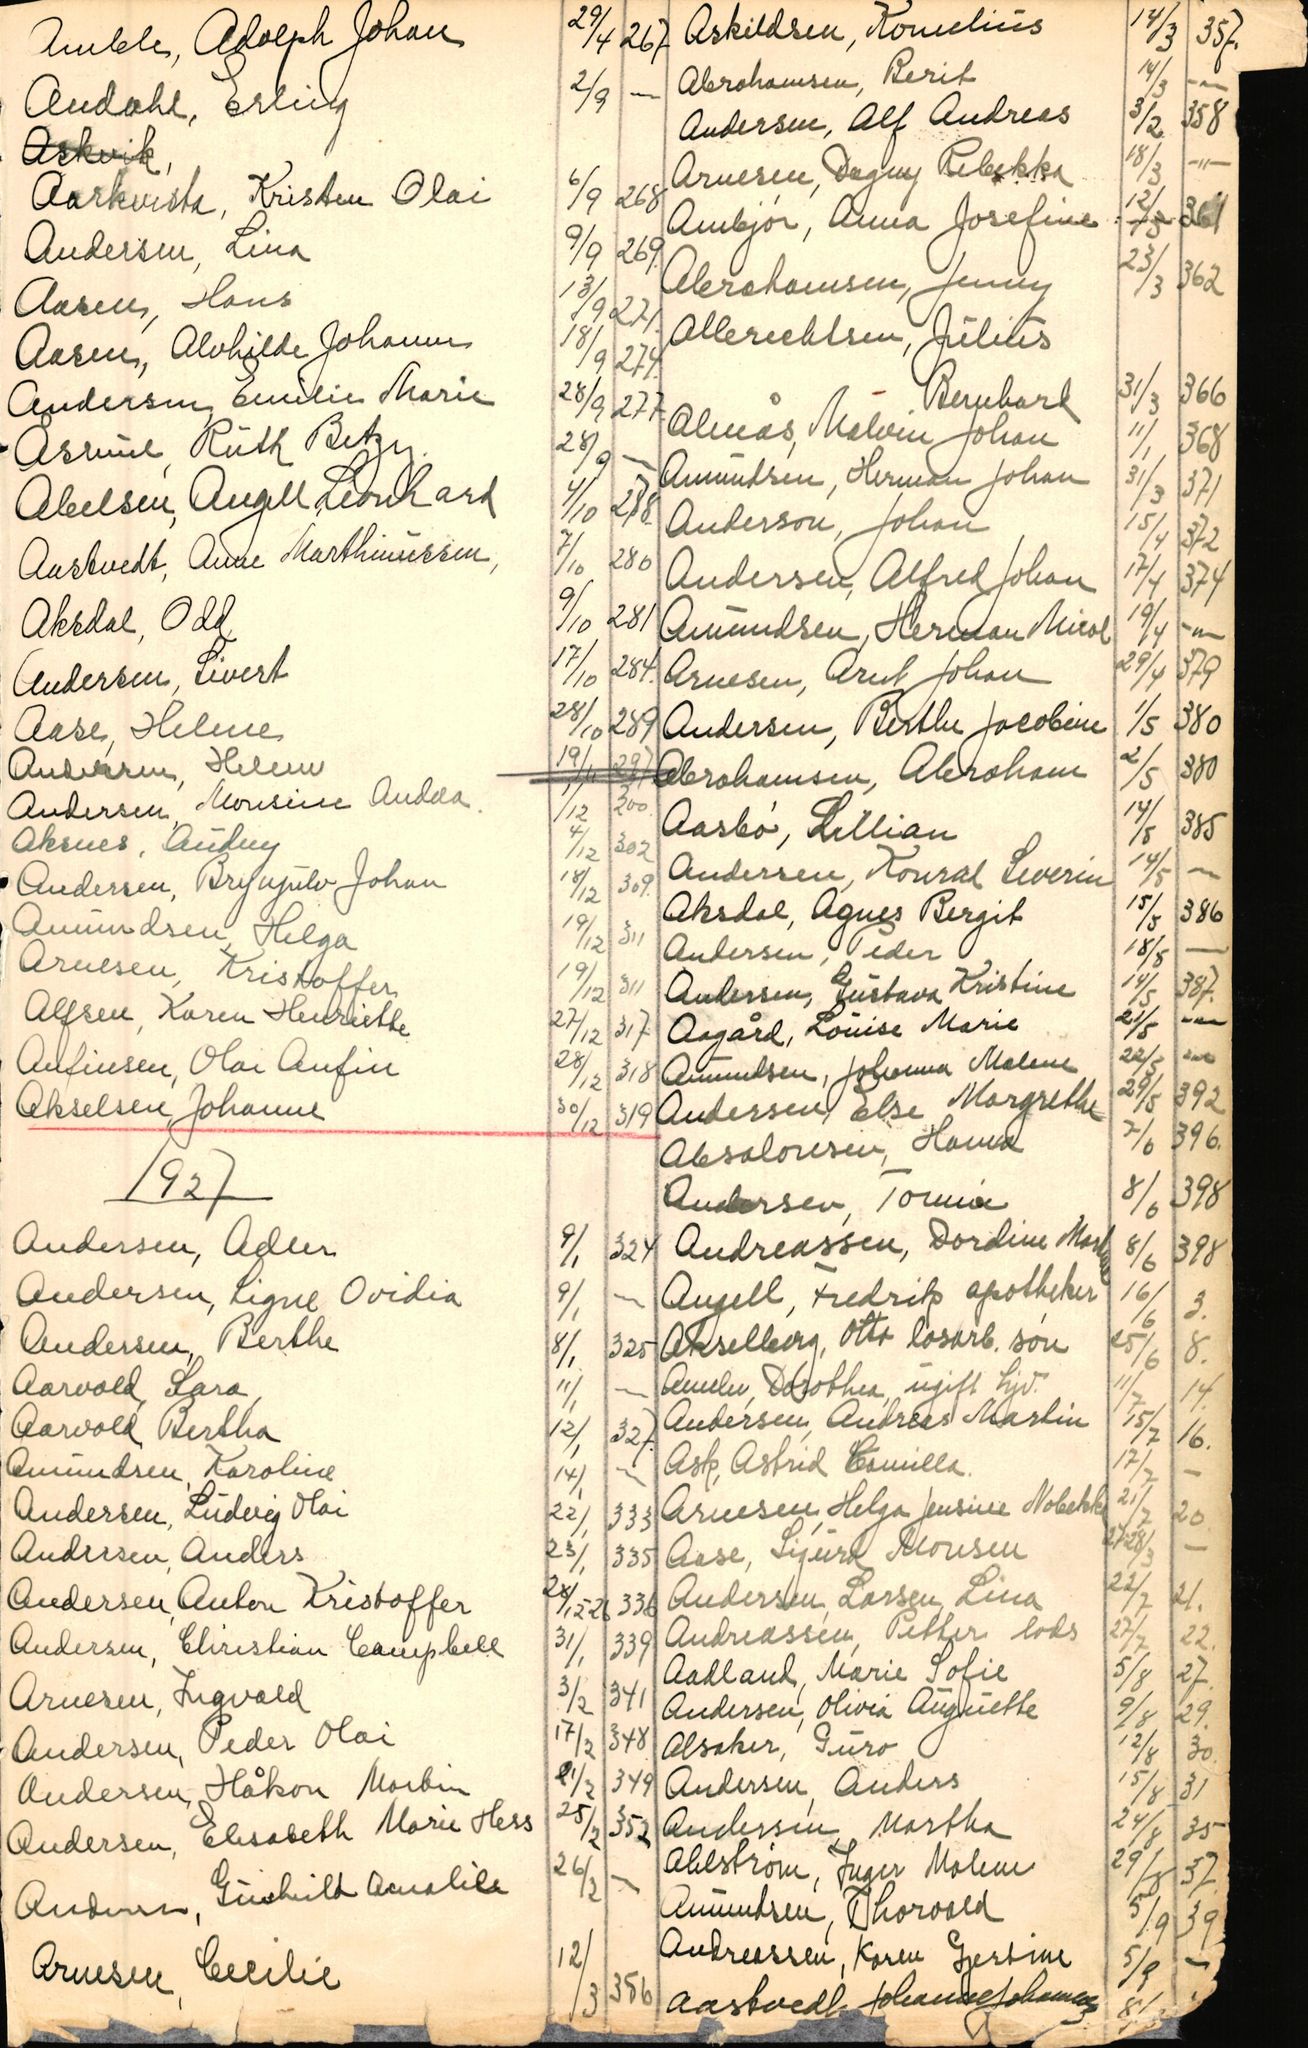 Amble, Adolph Johan 29/4 267.
Andahl, Erling 2/9 —
Askvik,
Aarkvisla, Kristen Olai 6/9 268
Andersen, Lina 9/9 269.
Aasen, Hans 13/9 271.
Aasen, Alvhilde Johanne 18/9 274.
Andersen, Emilie Marie 28/9 277
Åsrud, Ruth Betzy. 28/9 —
Abelsen, Angell Leonhard 4/10 278
Aastvedt, Anne Marthinussen, 7/10 280
Aksdal, Odd 9/10 281
Andersen, Sivert 17/10 284.
Aase, Helene 28/10 289
Andersen, Helene 19/11 297
Andersen, Monsine Andrea. /12 300.
Aksnes, Audny 4/12 302
Andersen, Brynjulv Johan 18/12 309.
Amundsen, Helga 19/12 311
Arnesen, Kristoffer 19/12 311
Alfsen, Karen Henriette 27/12 317.
Anfinsen, Olai Anfin 28/12 318
Akselsen, Johanne 30/12 319
1927
Andersen, Adler 9/1 324
Andersen, Signe Ovidia 9/1 —
Andersen, Berthe 8/1 325
Aarvold, Sara, 11/1 —
Aarvold, Bertha 12/1 327.
Amundsen, Karoline 14/1 —
Andersen, Ludvig Olai 22/1 333
Andersen, Anders 23/1 335
Andersen, Anton Kristoffer 28/12 26 336
Andersen, Christian Campbell 31/1 339
Arnesen, Ingvald 3/2 341
Andersen, Peder Olai 17/2 348
Andersen, Håkon Martin 21/2 349
Andersen, Elisabeth Marie Hess 25/2 352
Andersen, Gunhild Amalie 26/2 —
Arnesen, Cecilie 12/3 356
Askildsen, Kornelius 14/3 357.
Abrahamsen, Berit 14/3 —"—
Andersen, Alf Andreas 3/2 358
Arnesen, Dagny Rebekka 18/3 —"—
Ambjør, Anna Josefine 12/3 361
Abrahamsen, Jenny 23/3 362
Albrechtsen, Julius
Bernhard 31/3 366
Almås, Malvin Johan 11/1 368
Amundsen, Herman Johan 31/3 371
Anderson, Johan 15/4 372
Andersen, Alfred Johan 17/4 374
Amundsen, Herman Nicol 19/4 —"—
Arnesen, Arnt Johan 29/4 379
Andersen, Berthe Jacobine 1/5 380
Abrahamsen, Abraham 2/5 380
Aasbö, Lillian 14/5 385
Andersen, Konrad Severin 14/5 —
Aksdal, Agnes Bergit 15/5 386
Andersen, Peder 18/5 —
Andersen, Gustava Kristine 14/5 387.
Aagård, Louise Marie 21/5 —"—
Amundsen, Johanna Malene 22/5 —"—
Andersen, Else Margrethe 29/5 392
Absalonsen, Hanna 7/6 396.
Andersen, Tomia 8/6 398
Andreassen, Dordine Martine 8/6 398
Angell, Fredrik apotheker 16/6 3.
Akselberg, Otto losarb. sön 25/6 8.
Amelen, Dorothea, ugift hjv. 11/7 14.
Andersen, Andreas Martin 15/7 16.
Ask, Astrid Camilla. 17/7 —
Arnesen, Helga Jensine Nobekke 21/7 20
Aase, Sigurd Monsen 28/3 —
Andersen, Larsen, Lina 22/7 21.
Andreassen, Petter lods 27/7 22.
Aadland, Marie Sofie 5/8 27.
Andersen, Olivia Augustte 9/8 29.
Alsaker, Guro 12/8 30.
Andersen, Anders 15/8 31
Andersen, Martha 24/8 35
Ahlström, Inger Malene 29/8 37.
Amundsen, Thorvald 5/9 39
Andreassen, Karen Gjertine 5/9 —
Aastvedt, Johanne Johannes 8/